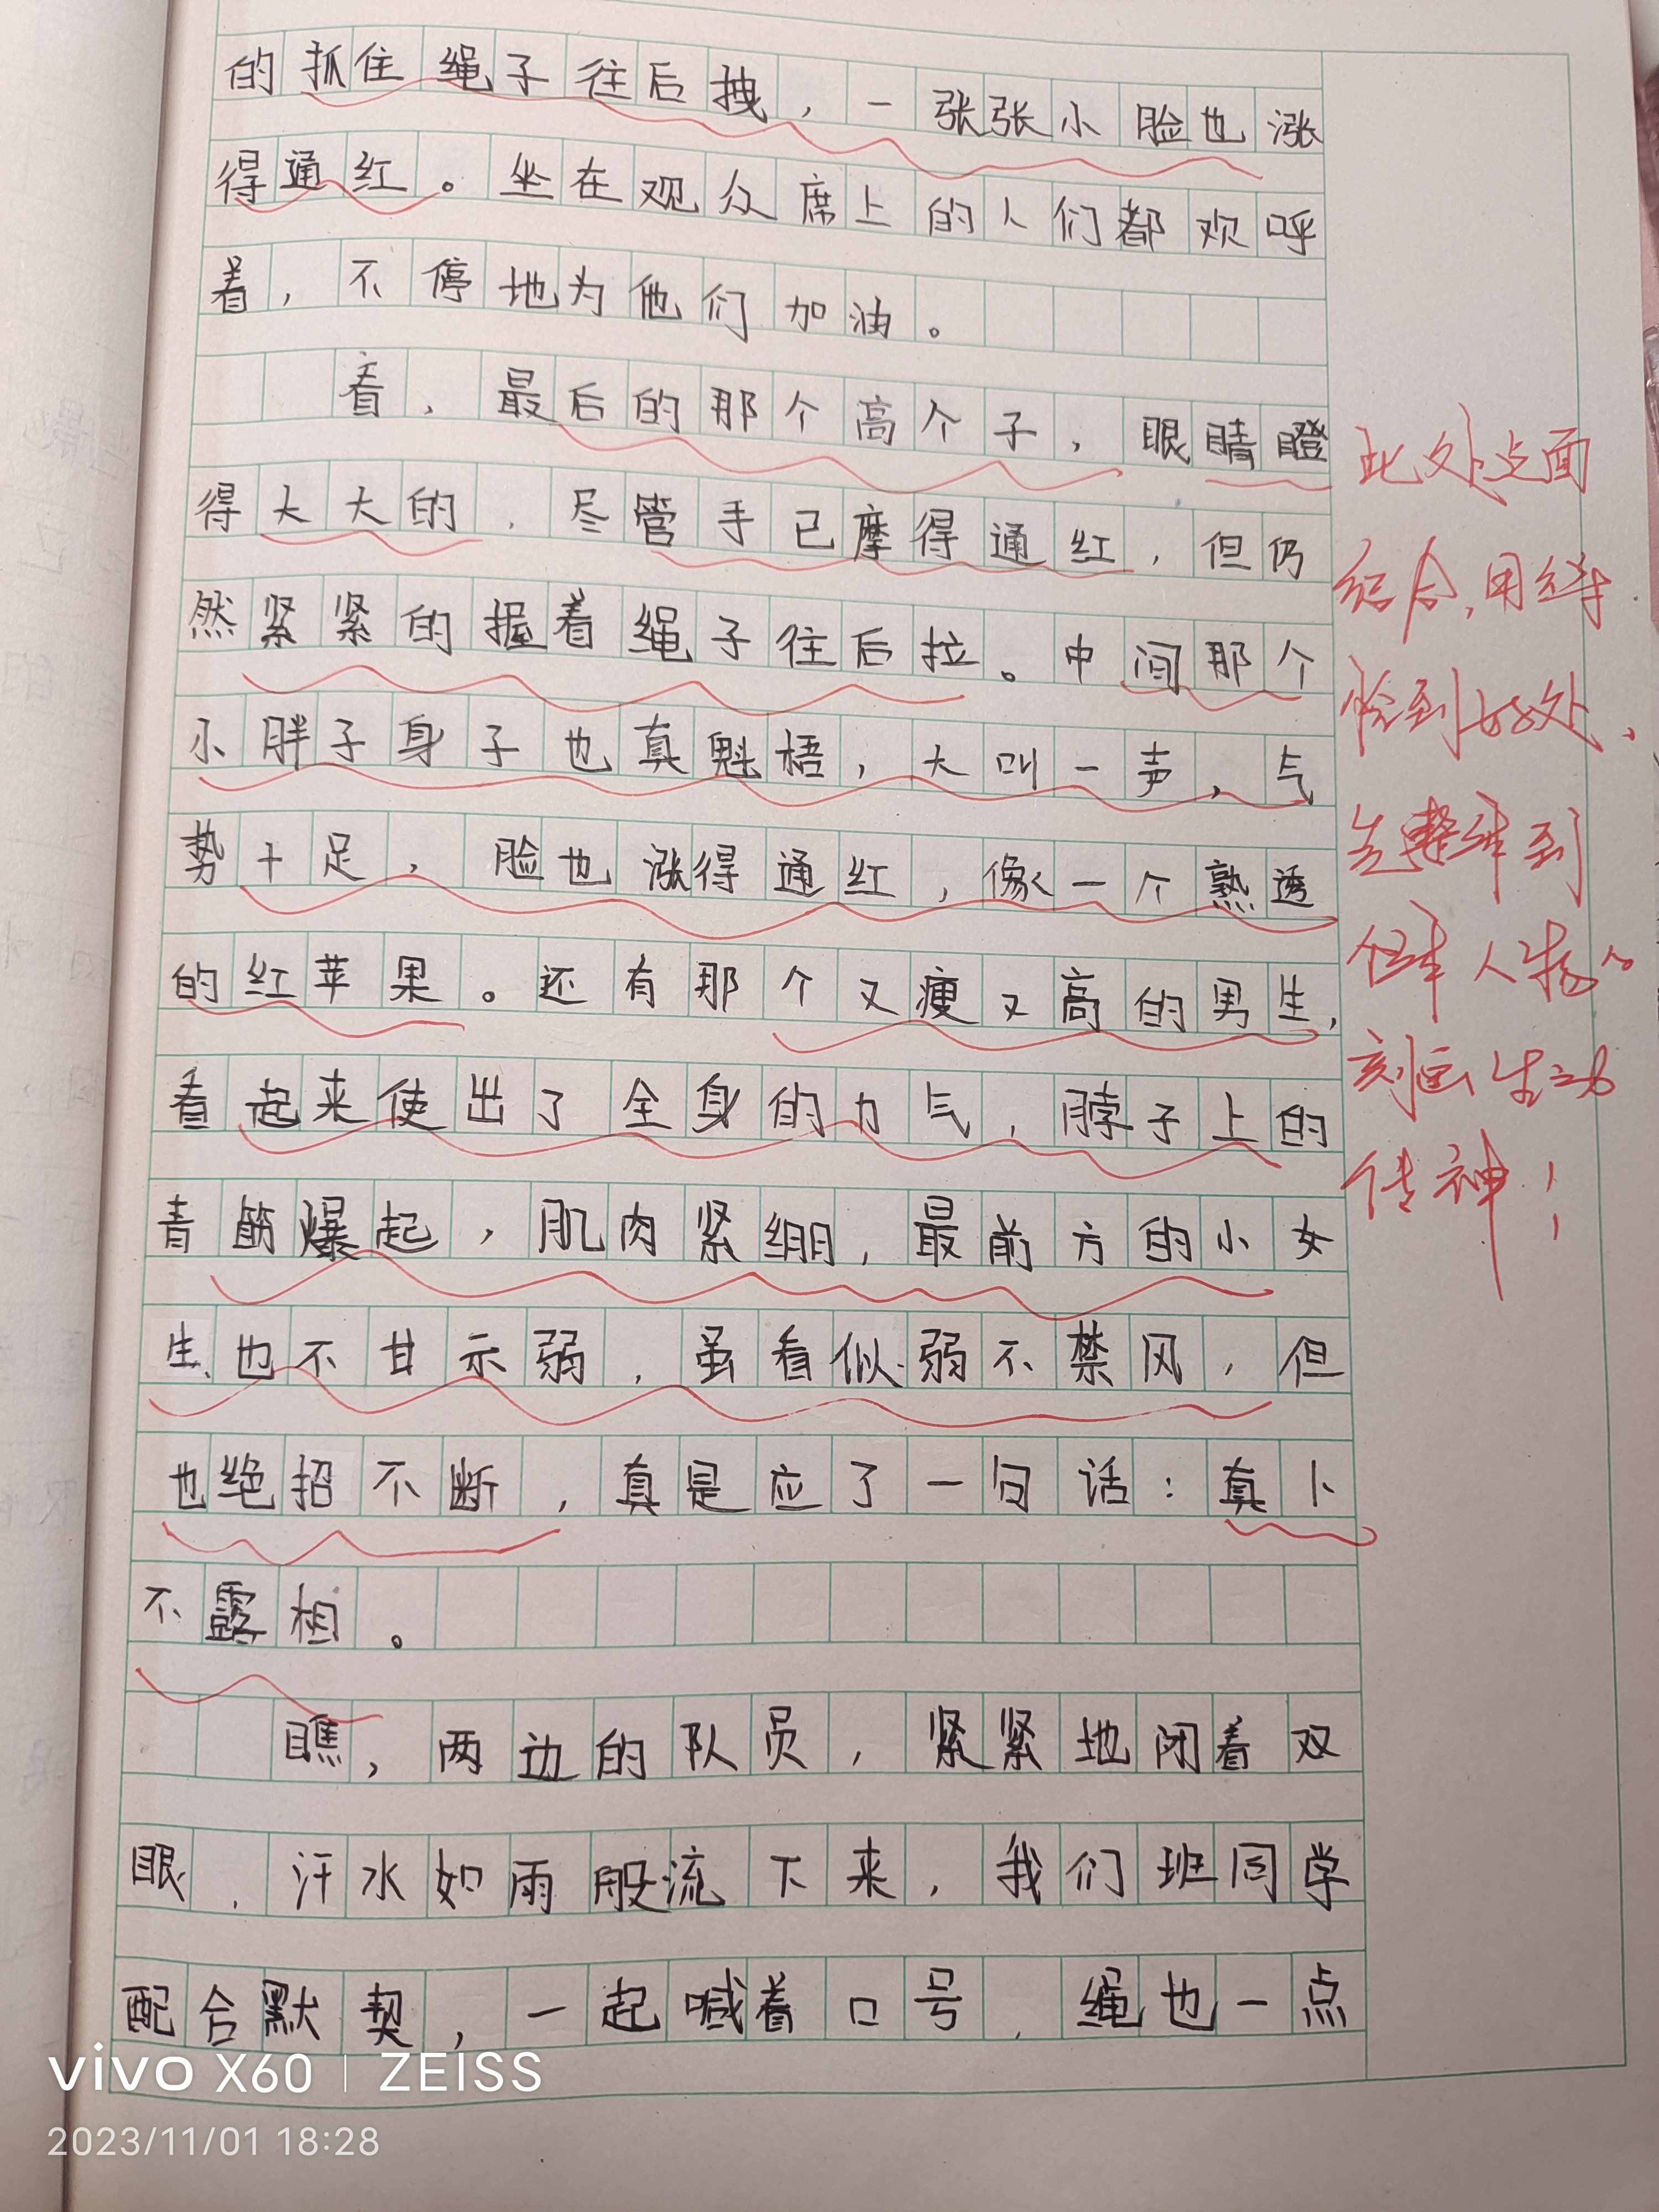 的抓住绳子往后拽，一张张小脸也涨
得通红。坐在观众席上的人们都欢呼
着，不停地为他们加油。
看，最后的那个高个子，眼睛瞪
得大大的，尽管手已摩得通红，但仍
然紧紧的握着绳子往后拉。中间那个
小胖子身子也真魁梧，大叫一声，气
势十足，脸也涨得通红，像一个熟透
的红苹果。还有那个又瘦又高的男生，
看起来使出了全身的力气，脖子上的
青筋爆起，肌肉紧绷，最前方的小女
生也不甘示弱，虽看似弱不禁风，但
也绝招不断，真是应了一句话：真卜
不露相。
瞧，两边的队员，紧紧地闭着双
眼，汗水如雨般流下来，我们班同学
配合默契，一起喊着口号，绳也一点
此处点面
结合，用得
恰到好处，
先整体到
个体人物
刻画生动
传神！
vivo X60 | ZEISS
2023/11/01 18:28